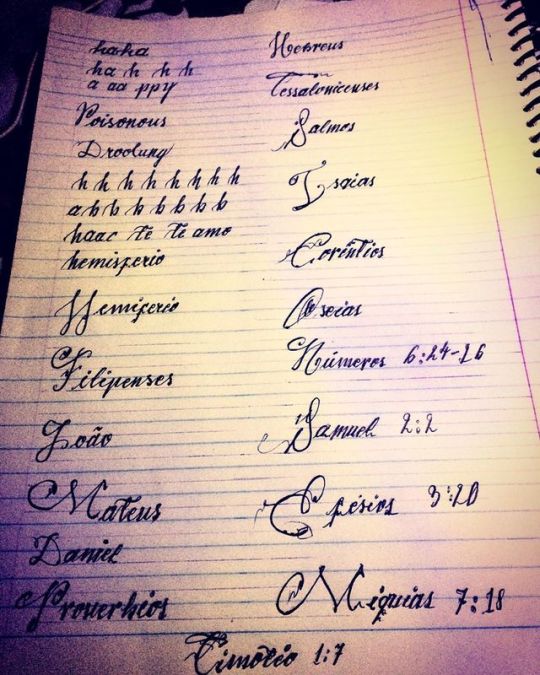 haha
ha h h h
a aa ppy
Poisonous
Drooling
h h h h h h h h
a b b b b b b b
haac te te amo
hemisferio
Hemiferio
Filipenses
João
Mateus
Daniel
Proverbios
Hebreus
Tessalonicenses
Salmos
Isaias
Coríntios
Oseias
Números 6:24-26
Samuel 2:2
Efésios 3:20
Miquias 7:18
Timóteo 1:7